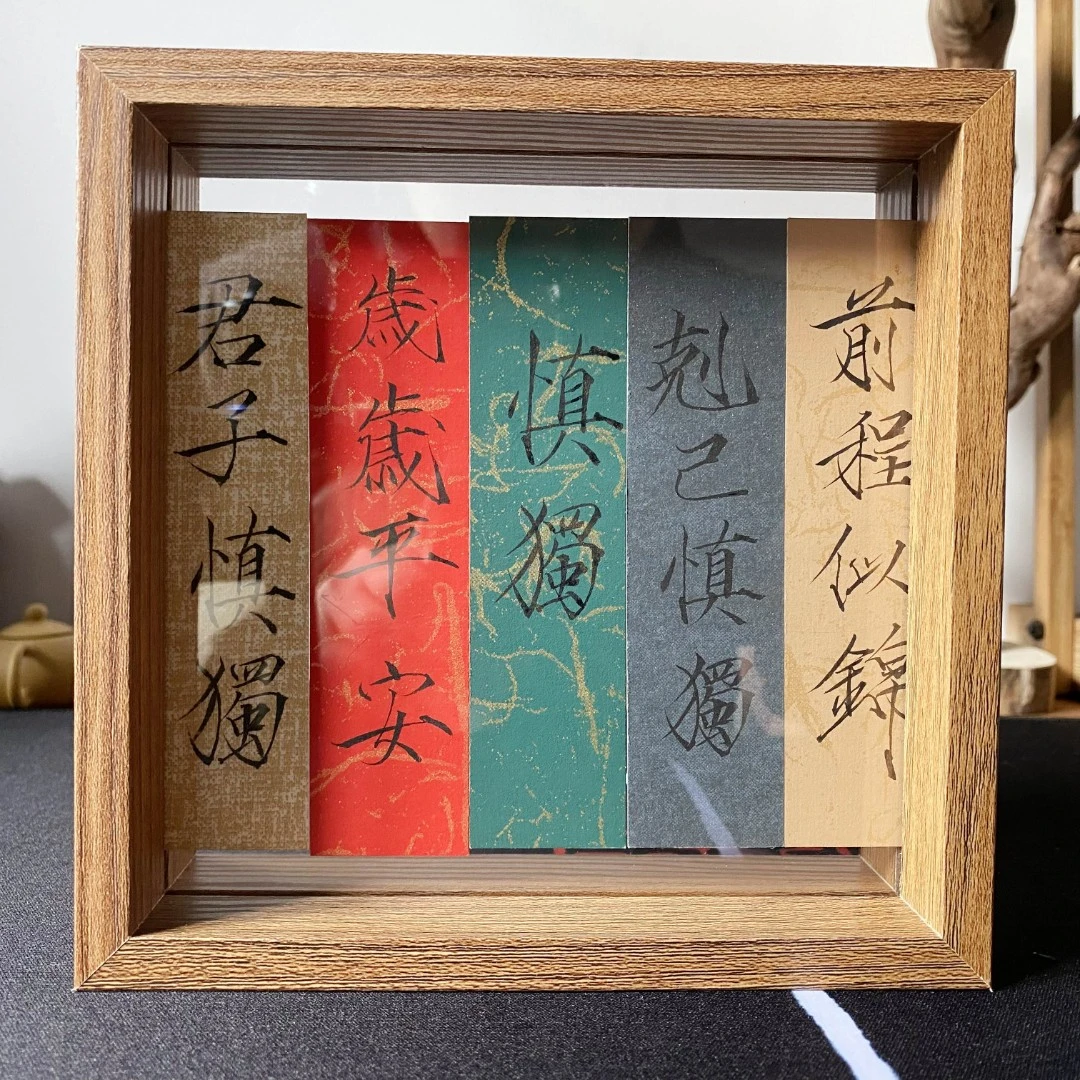 君子慎獨
歲歲平安
慎獨
剋己慎獨
前程似錦